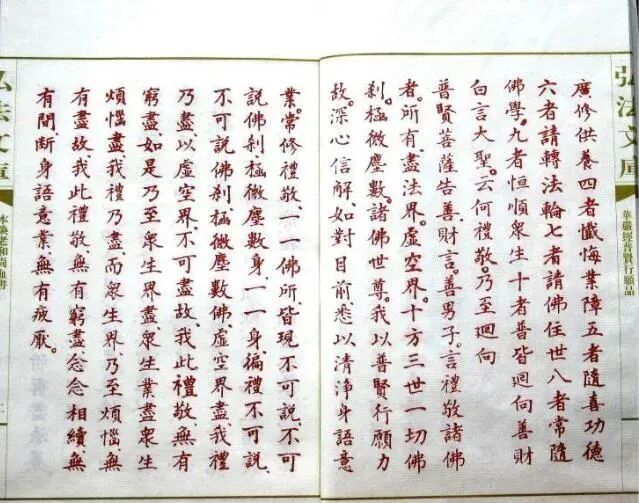 弘法文庫
華嚴經普賢行願品
廣修供養四者懺悔業障五者隨喜功德
六者請轉法輪七者請佛住世八者常隨
佛學。九者恒順眾生十者普皆迴向善財
白言大聖。云何禮敬。乃至迴向
普賢菩薩告善財言。善男子。言禮敬諸佛
者。所有盡法界。虛空界。十方三世一切佛
剎。極微塵數。諸佛世尊。我以普賢行願力
故。深心信解。如對目前悉以清淨身語意
業。常修禮敬。一一佛所。皆現不可說。不可
說佛剎。極微塵數身。一一身。徧禮不可說。
不可說佛剎極微塵數佛。虛空界盡我禮
乃盡以虛空界。不可盡故。我此禮敬無有
窮盡。如是乃至眾生界盡。眾生業盡眾生
煩惱盡我禮乃盡而眾生界。乃至煩惱。無
有盡故。我此禮敬。無有窮盡念念相續。無
有間斷。身語意業。無有疲厭。
弘法文庫
本煥老和尚血書